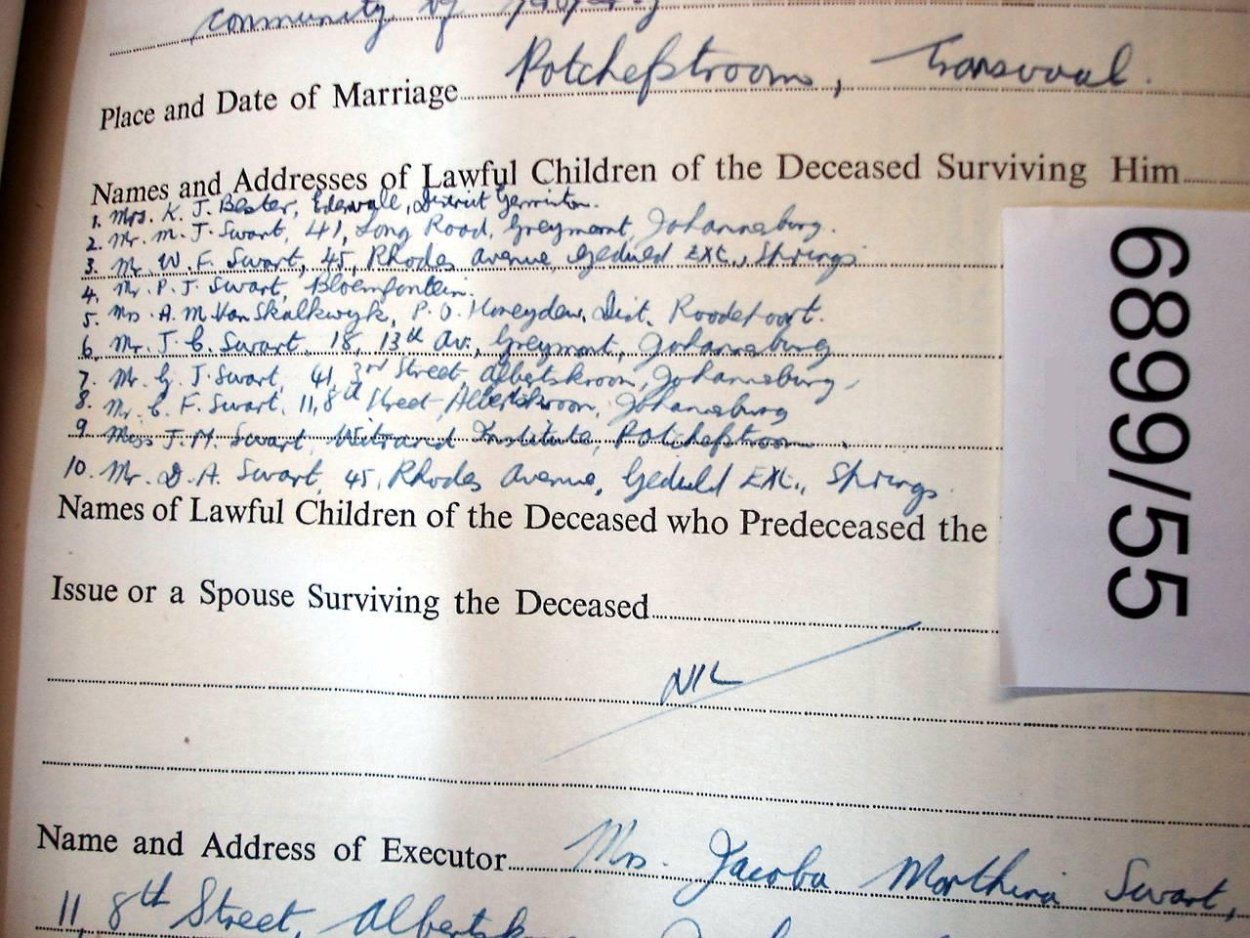 community of property
Place and Date of Marriage Potchefstroom, Transvaal.
Names and Addresses of Lawful Children of the Deceased Surviving Him
1. Mrs. K. J. Bester, Edenvale, District Germiston.
2. Mr. M. J. Swart, 41, Long Road, Greymont, Johannesburg.
3. Mr. W. F. Swart, 45, Rhodes Avenue, Geduld EXT., Springs
4. Mr. P. J. Swart, Bloemfontein.
5. Mrs. A. M. Van Skalkwyk, P. O. Honeydew, Dist. Roodepoort.
6. Mr. J. C. Swart, 18, 13th Av., Greymont, Johannesburg
7. Mr. G. J. Swart, 41, 3rd Street Albertskroon, Johannesburg
8. Mr. C. F. Swart, 11, 8th Street Albertskroon, Johannesburg
9. Miss J. M. Swart, Witrand Institute, Potchefstroom.
10. Mr. D. A. Swart, 45, Rhodes Avenue, Geduld EXT., Springs.
Names of Lawful Children of the Deceased who Predeceased the
Issue or a Spouse Surviving the Deceased
NIL
Name and Address of Executor Mrs. Jacoba Marthina Swart,
11, 8th Street,
6899/55